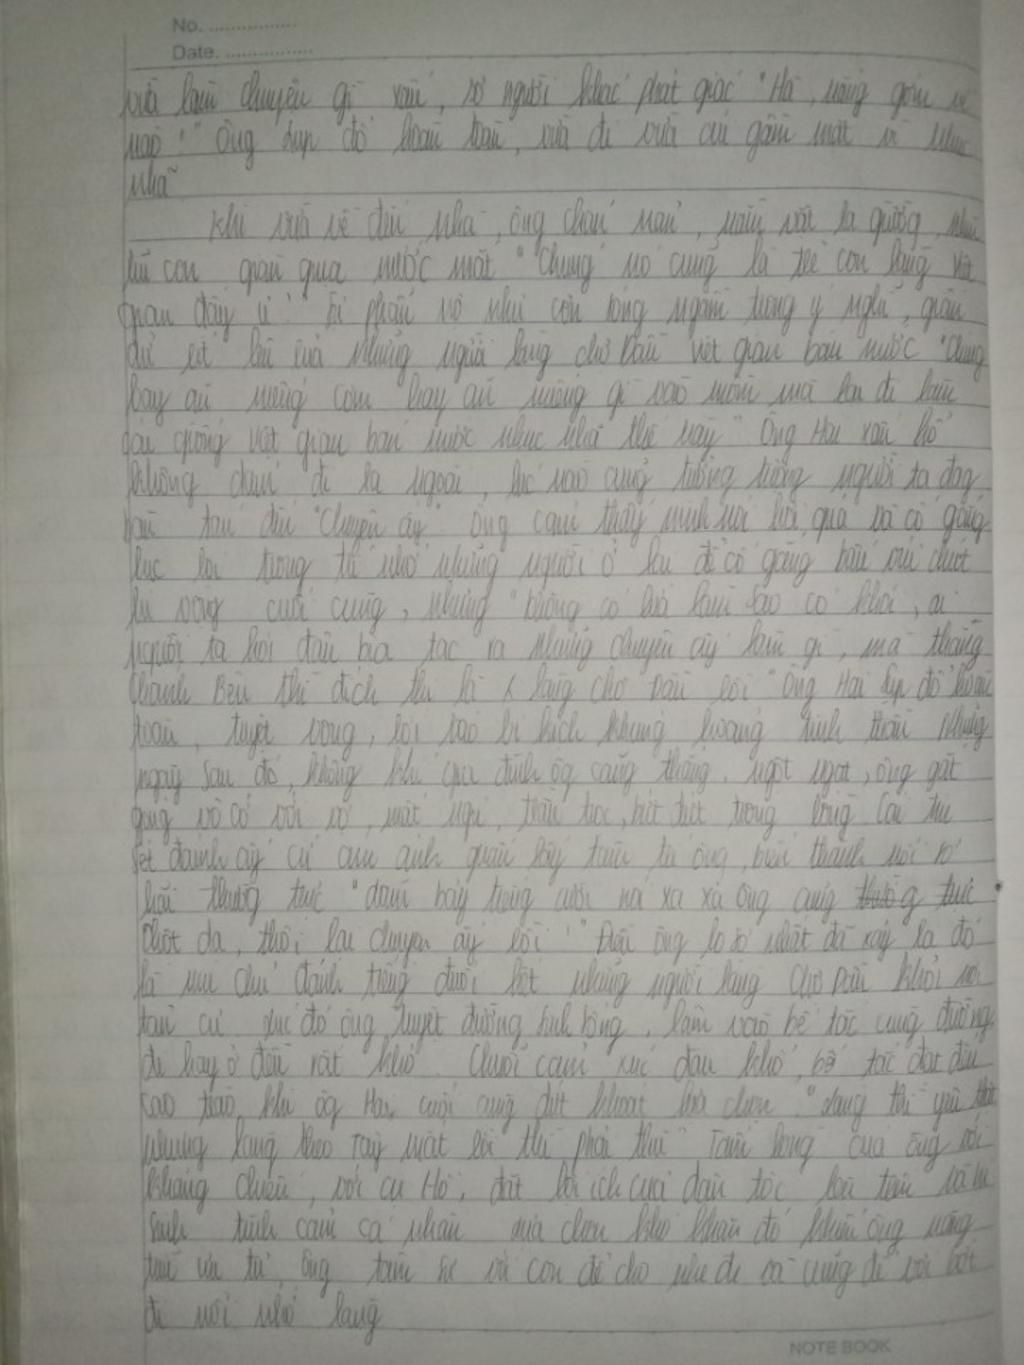 No. ................
Date. ................
vừa làm chuyện gì xấu, sợ người khác phát giác "Hà, nắng gớm về
nào!" Ông sụp đổ hoàn toàn, vừa đi vừa cúi gằm mặt vì nhục
nhã
Khi vừa về đến nhà, ông chán nản, nằm vật ra giường, nhìn
lũ con giàn giụa nước mắt "Chúng nó cũng là trẻ con làng Việt
gian đấy ư!" phẫn nộ như còn trong ngầm trong ý nghĩ, giận
dữ rít lên của những người làng chợ Dầu Việt gian bán nước "Chúng
bay ăn miếng cơm hay ăn miếng gì vào mồm mà lại đi làm
cái giống Việt gian bán nước nhục nhã thế này" Ông Hai xấu hổ
không dám đi ra ngoài, lúc nào cũng tưởng tượng người ta đag
bàn tán đến "chuyện ấy". Ông cảm thấy mình nói hơi quá và cố gắng
lục lọi trong trí nhớ những người ở lại để cố gắng bấu víu chút
hi vọng cuối cùng, nhưng "không có lửa làm sao có khói, ai
người ta hơi đâu bịa tạc ra những chuyện ấy làm gì, mà thằng
chánh Bệu thì đích thị là ng làng chợ Dầu rồi" Ông Hai sụp đổ hoàn
toàn, tuyệt vọng, rơi vào bi kịch khủng hoảng tinh thần những
ngày sau đó, không khí gia đình ôg căng thẳng, ngột ngạt, ông gắt
gỏng vô cớ với vợ, mất ngủ, trằn trọc, trong lòng Cái tin
sét đánh ấy cứ ám ảnh quấn lấy tâm trí ông, biến thành nỗi sợ
hãi thường trực "đám bảy tiếng cười nói xa xa ông cũng
chột dạ, thôi lại chuyện ấy rồi!" Điều ông lo sợ nhất đã xảy ra đó
là mụ chủ đánh tiếng đuổi hết những người làng Chợ Dầu khỏi nơi
tản cư lúc đó ông tuyệt đường sinh sống, lâm vào bế tắc cùng đường
đi hay ở đều rất khó. Chuỗi cảm xúc đau khổ, bế tắc đạt đến
cao trào, khi ôg Hai cuối cùng dứt khoát lựa chọn: "Làng thì yêu thật
nhưng làng theo Tây mất rồi thì phải thù" Tấm lòng của ông với
kháng chiến, với cụ Hồ, đặt lợi ích của dân tộc lên trên và hi
sinh tình cảm cá nhân lựa chọn khó khăn đó khiến ông nặng
ông tâm sự với con để cho nhẹ đi và cũng để vơi bớt
đi nỗi nhớ làng
NOTE BOOK